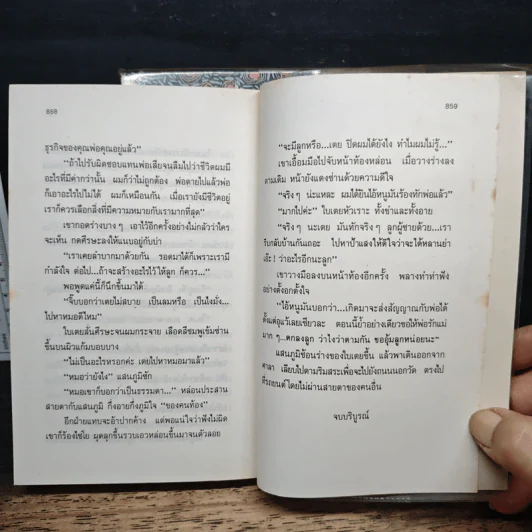 858
ธุรกิจของคุณพ่อคุณอยู่แล้ว”
“ถ้าไปรับผิดชอบแทนพ่อเสียจนลืมไปว่าชีวิตผมมี
อะไรที่มีค่ากว่านั้น ผมก็ว่าไม่ถูกต้อง พ่อตายไปแล้วพ่อ
ก็เอาอะไรไปไม่ได้ ผมก็เหมือนกัน เมื่อเรายังมีชีวิตอยู่
เราก็ควรเลือกสิ่งที่มีความหมายกับเรามากที่สุด”
เขากอดร่างบาง ๆ เอาไว้อีกครั้งอย่างไม่กลัวว่าใคร
จะเห็น กดศีรษะลงให้แนบอยู่กับบ่า
“เราเคยลำบากมาด้วยกัน รอดมาได้ก็เพราะเรามี
กำลังใจ ต่อไป...ถ้าจะสร้างอะไรไว้ให้ลูก ก็ควร...”
พอพูดแค่นี้ก็นึกขึ้นมาได้
“จิ๊บบอกว่าเตยไม่สบาย เป็นลมหรือ เป็นไงมั่ง...
ไปหาหมอดีไหม”
ใบเตยสั่นศีรษะจนผมกระจาย เลือดสีชมพูเข้มซ่าน
ขึ้นบนผิวแก้มบอบบาง
“ไม่เป็นอะไรหรอกค่ะ เตยไปหาหมอมาแล้ว”
“หมอว่ายังไง” แสนภูมิซัก
“หมอเขาก็บอกว่าเป็นธรรมดา...” หล่อนประสาน
สายตากับแสนภูมิ กึ่งอายกึ่งภูมิใจ “ของคนท้อง”
อีกฝ่ายแทบจะอ้าปากค้าง แต่พอแน่ใจว่าฟังไม่ผิด
เขาก็ร้องไชโย ผุดลุกขึ้นรวบเอวหล่อนขึ้นมาจนตัวลอย
859
“จะมีลูกหรือ...เตย ปิดผมได้ยังไง ทำไมผมไม่รู้...”
เขาเอื้อมมือไปจับหน้าท้องหล่อน เมื่อวางร่างลง
ตามเดิม หน้ายังแดงซ่านด้วยความดีใจ
“จริงๆ น่ะแหละ ผมได้ยินไอ้หนูมันร้องทักพ่อแล้ว”
“มากไปค่ะ” ใบเตยหัวเราะ ทั้งขำและทั้งอาย
“จริง ๆ นะเตย มันทักจริง ๆ ลูกผู้ชายด้วย...เรา
รีบกลับบ้านกันเถอะ ไปหาป้าแสงให้ดีใจว่าจะได้หลานย่า
เอ๊ะ! ว่าอะไรอีกนะลูก”
เขาวางมือลงบนหน้าท้องอีกครั้ง พลางทำท่าฟัง
อย่างตั้งอกตั้งใจ
“ไอ้หนูมันบอกว่า...เกิดมาจะส่งสัญญาณกับพ่อได้
ตั้งแต่อุแว้เลยเชียวละ ตอนนี้ย้ำอย่างเดียวขอให้พ่อรักแม่
มาก ๆ...ตกลงลูก ว่าไงว่าตามกัน ขออุ้มลูกหน่อยนะ”
แสนภูมิช้อนร่างของใบเตยขึ้น แล้วพาเดินออกจาก
ศาลา เลียบไปตามริมสระเพื่อจะไปยังถนนนอกวัด ตรงไป
ที่รถยนต์โดยไม่ผ่านสายตาของคนอื่น
จบบริบูรณ์